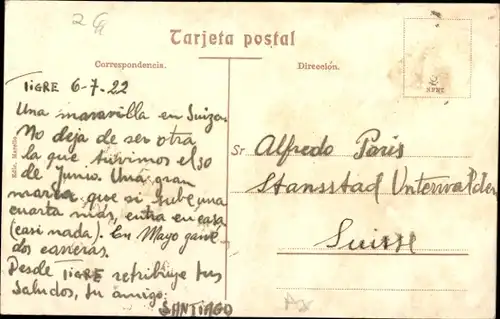 Tarjeta postal
Correspondencia.
Dirección.
TIGRE 6-7-22
Una maravilla en Suiza.
No deja de ser otra
la que tuvimos el 30
de Junio. Una gran
marea que si sube una
cuarta más, entra en casa
(casi nada). En Mayo gané
dos carreras.
Desde TIGRE retribuye tus
saludos, tu amigo:
SANTIAGO
Sr Alfredo Paris
Stansstad Unterwalden
Suisse